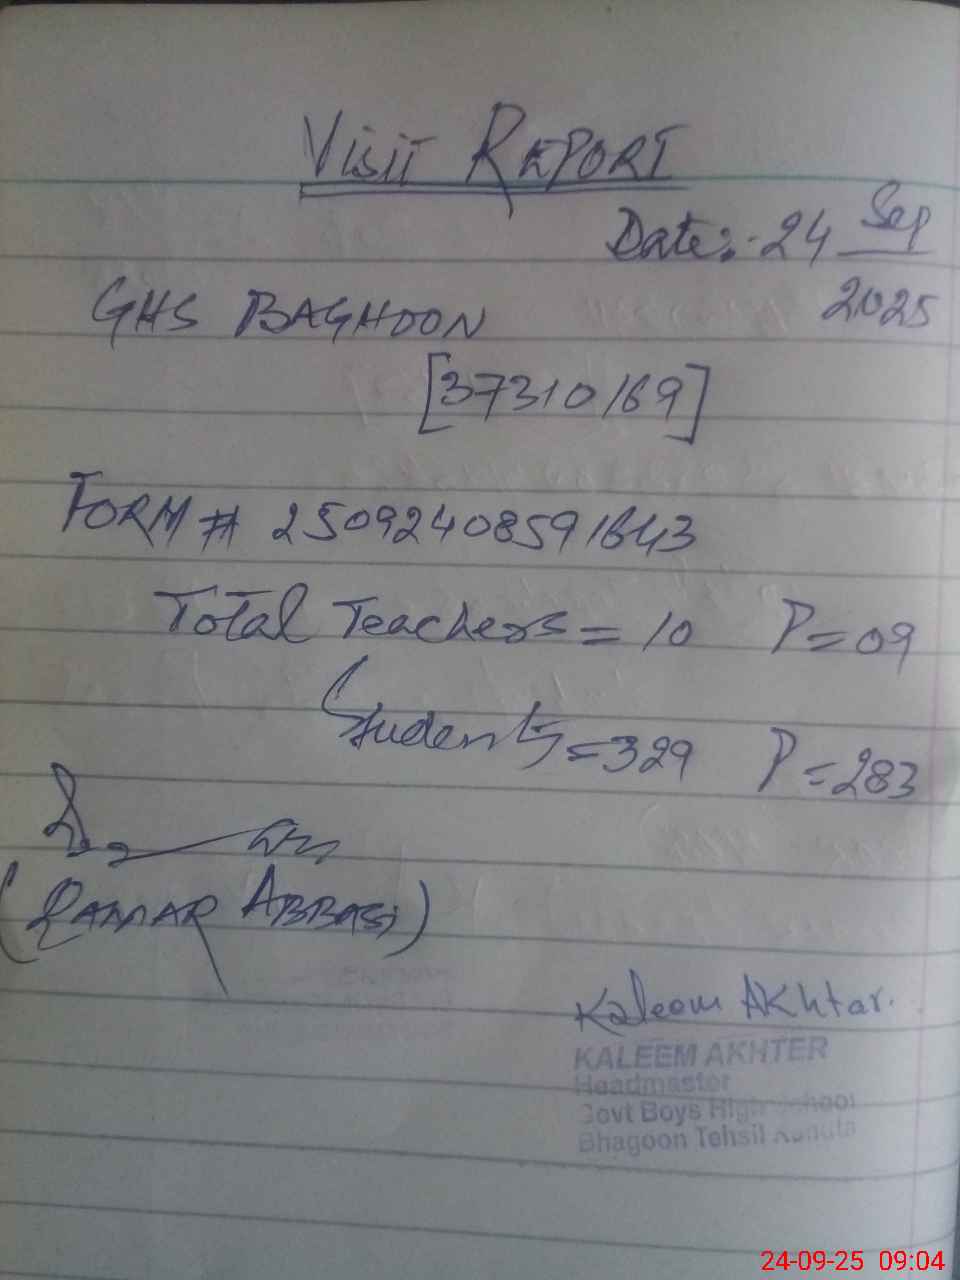 VISIT REPORT
Date:- 24 Sep
2025
GHS BAGHOON
[37310169]
FORM # 25092408591643
Total Teachers = 10 P = 09
Students = 329 P = 283
(QAMAR ABBASI)
Kaleem Akhtar.
KALEEM AKHTER
Headmaster
Govt Boys High School
Bhagoon Tehsil
24-09-25 09:04